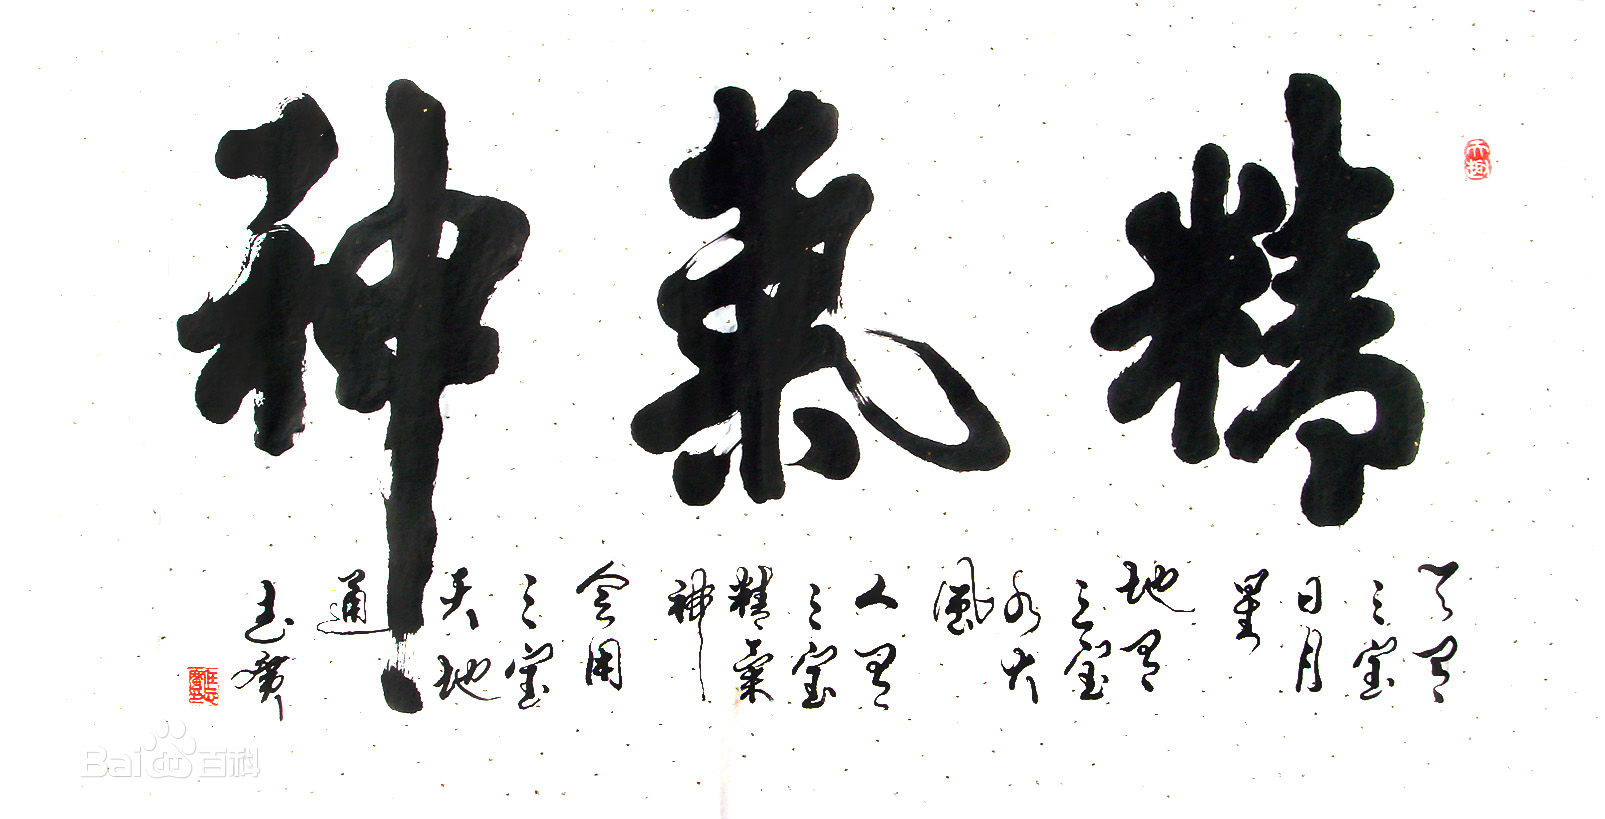 精氣神
天有
三宝
日月
星
地有
三宝
水火
風
人有
三宝
精氣
神
会用
三宝
天地
通
天趣
Bai百科